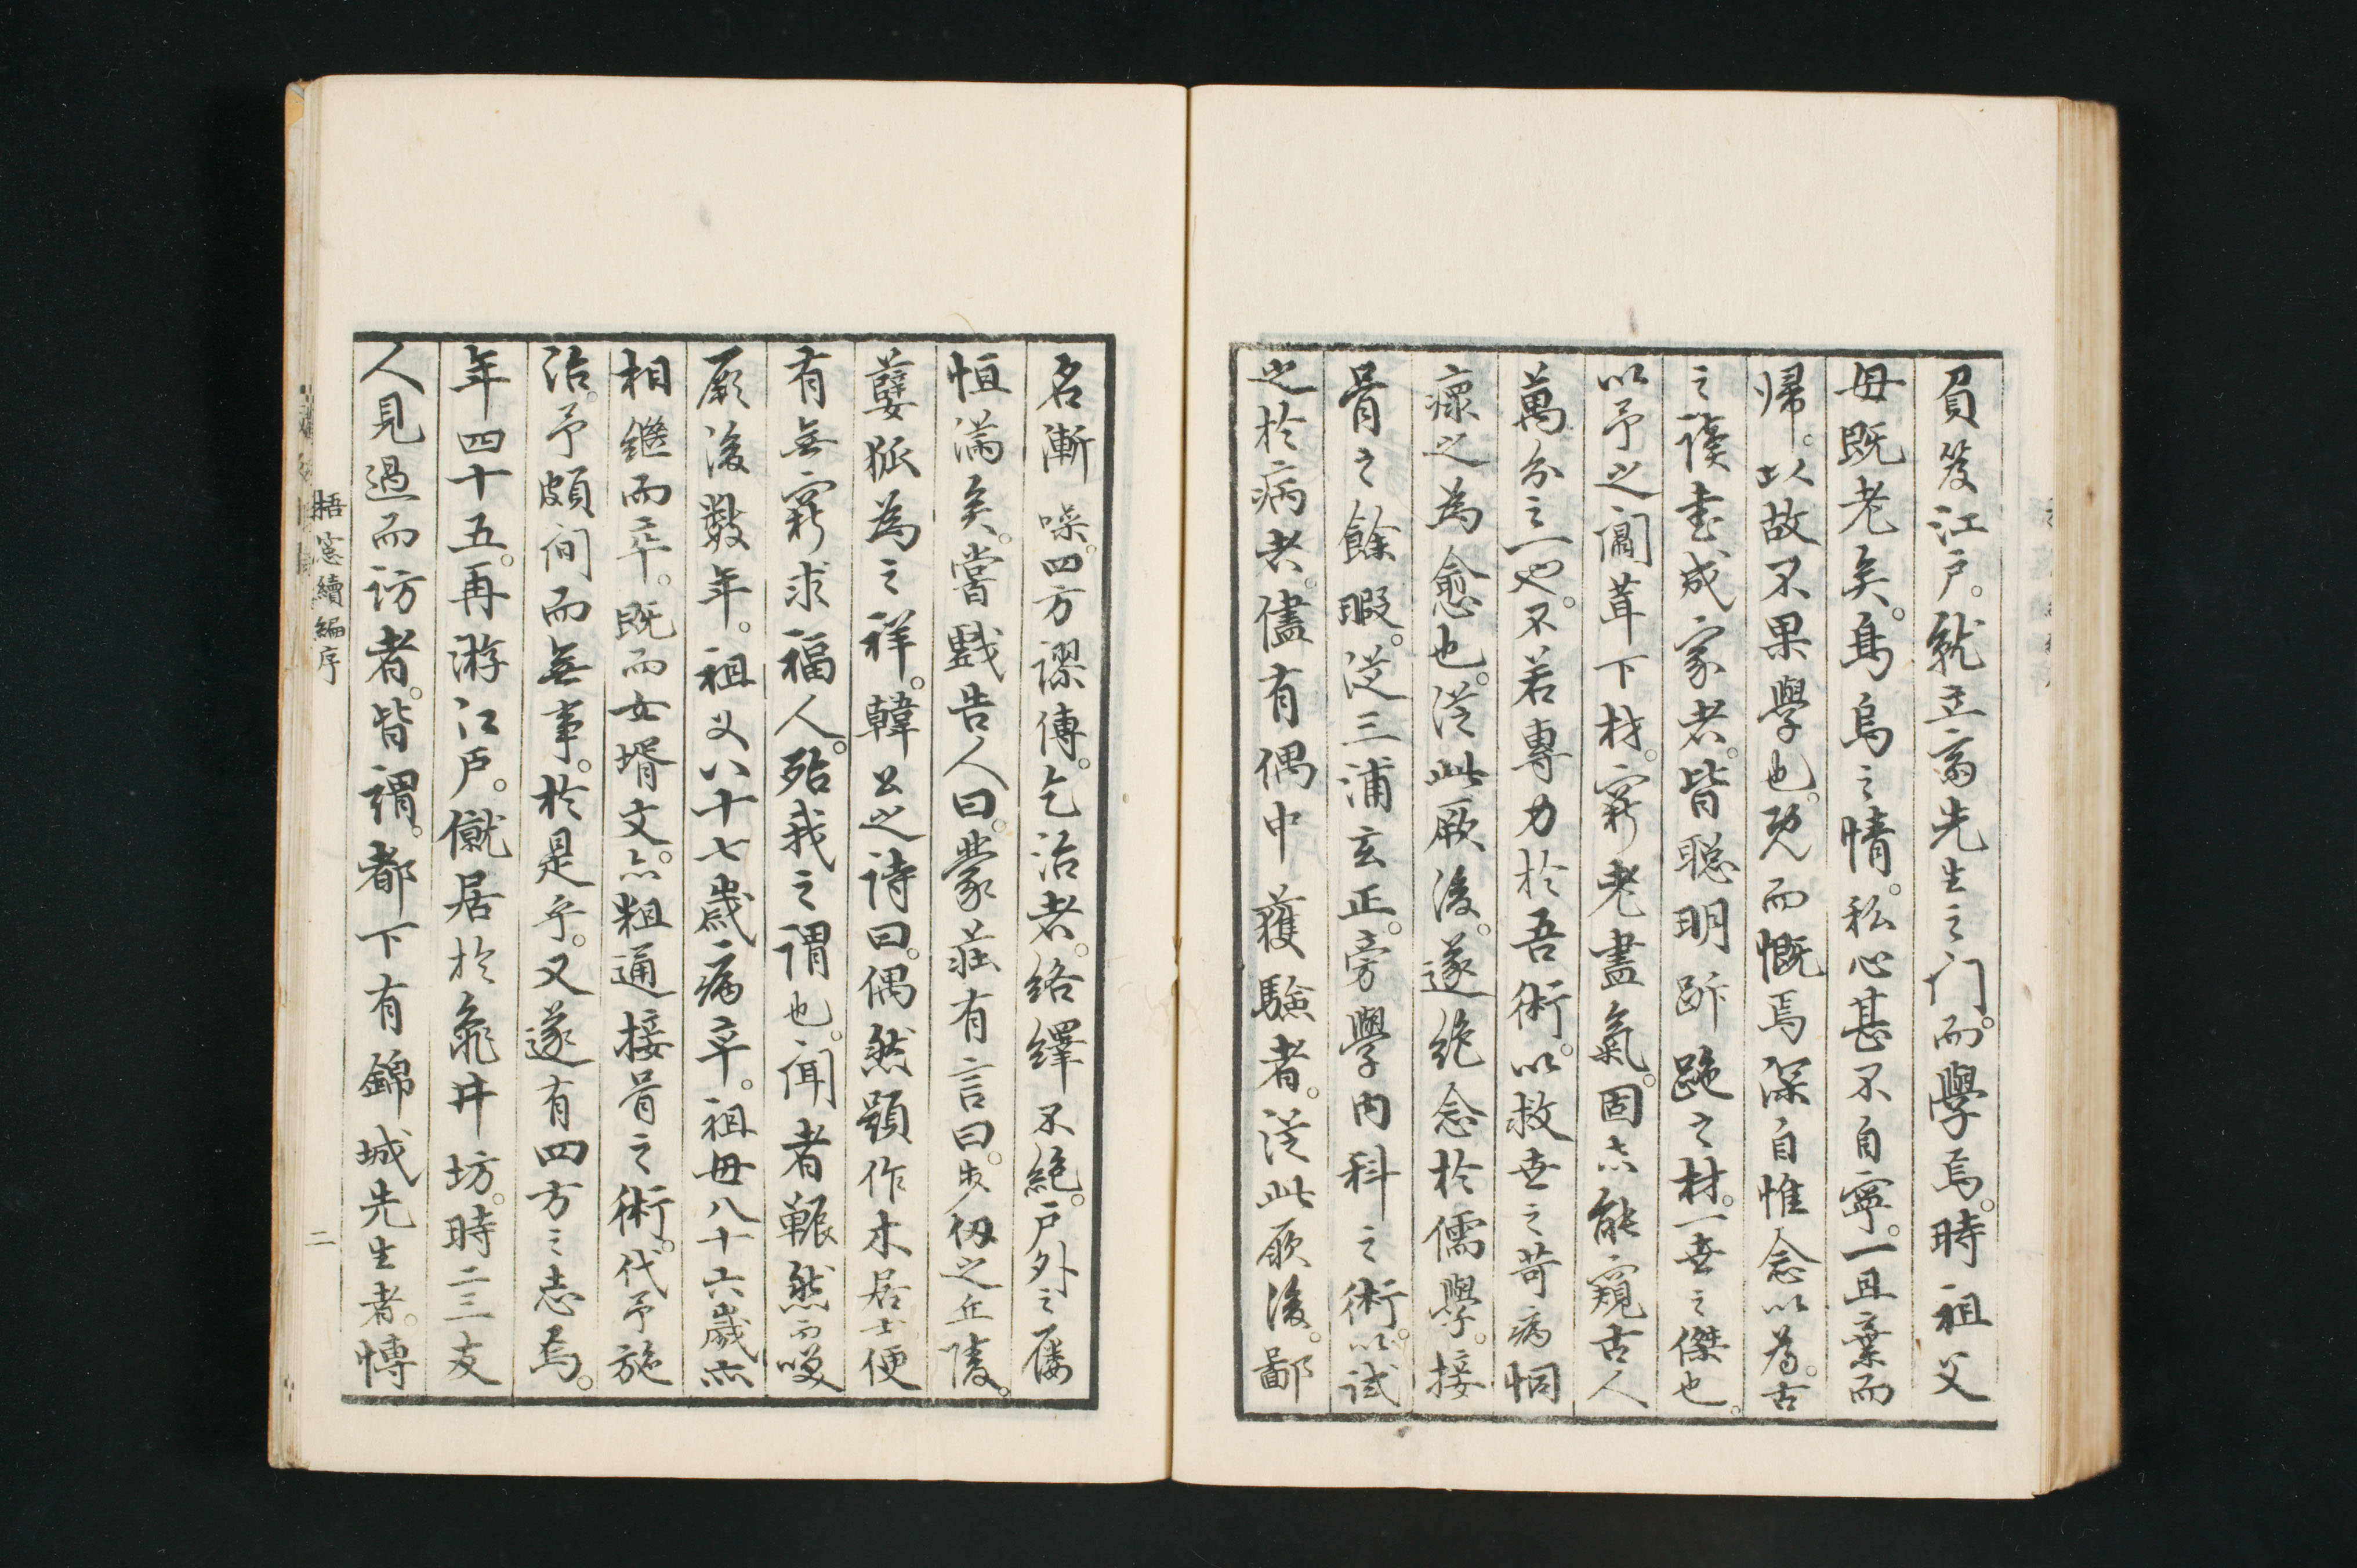 負笈江戸。就立斎先生之门。而學焉。時祖父
母既老矣。烏鳥之情。私心甚不自寧。一旦棄而
帰。以故不果學也。既而慨焉深自惟念以為。古
之讀書成家者。皆聡明跅跪之材。一世之傑也。
以予之闒茸下材。窮老盡氣。固亦能窺古人
萬分之一也。不若專力於吾術。以救世之苛病恫
瘝之為愈也。従此厥後。遂絶念於儒學。接
骨之餘暇。従三浦玄正。旁學内科之術。以試
之於病者。儘有偶中獲驗者。従此厥後。鄙
名漸噪。四方謬傳。乞治者。絡繹不絶。戸外之屨
恒滿矣。嘗戲告人曰。蒙荘有言曰。步仭之丘陵。
孽狐為之祥。韓公之詩曰。偶然題作木居士便
有無窮求福人。殆我之謂也。聞者囅然而𥬇
厥後數年。祖父八十七歳病卒。祖母八十六歳亦
相繼而卒。既而女壻文亦粗通接骨之術。代予施
治。予頗间而無事。於是乎。又遂有四方之志焉。
年四十五。再游江戸。僦居於龜井坊。時二三友
人見過而访者。皆謂。都下有錦城先生者。博
梧窓續編序
二